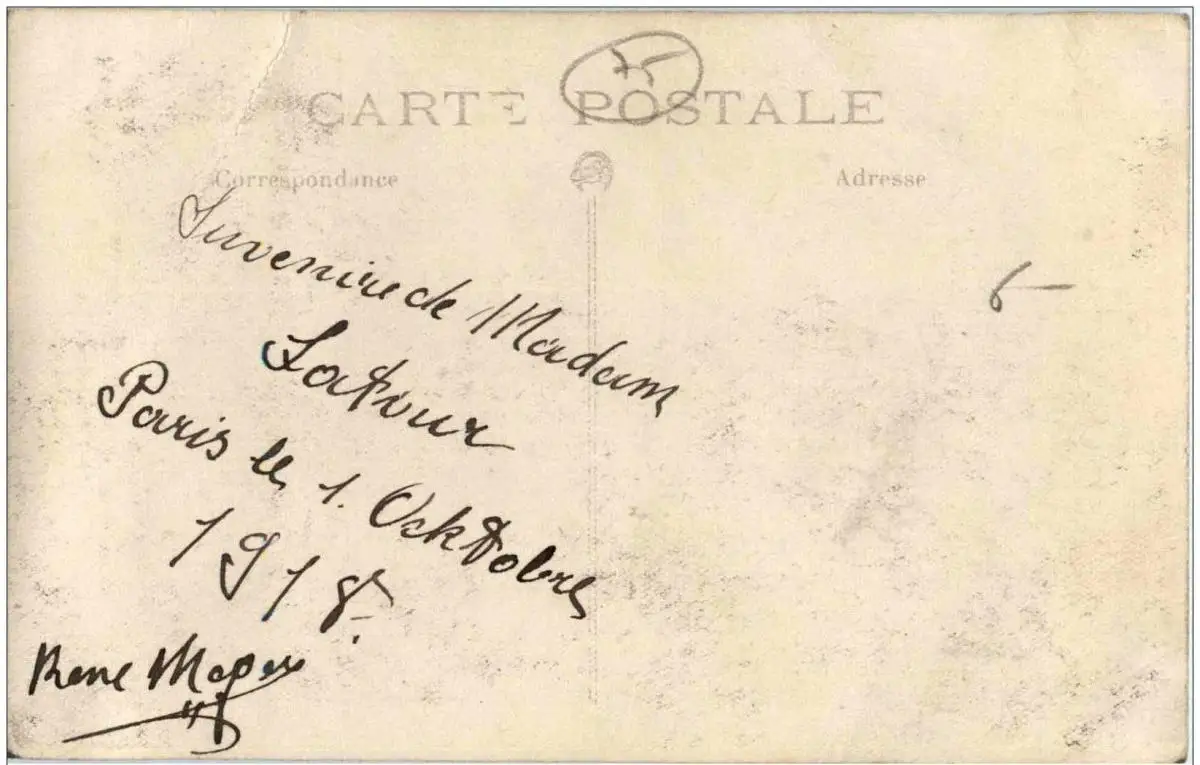 75
CARTE POSTALE
Correspondance
Adresse
Suvenire de Madam
Latour
Paris le 1. Ocktobre
1918.
6—
René